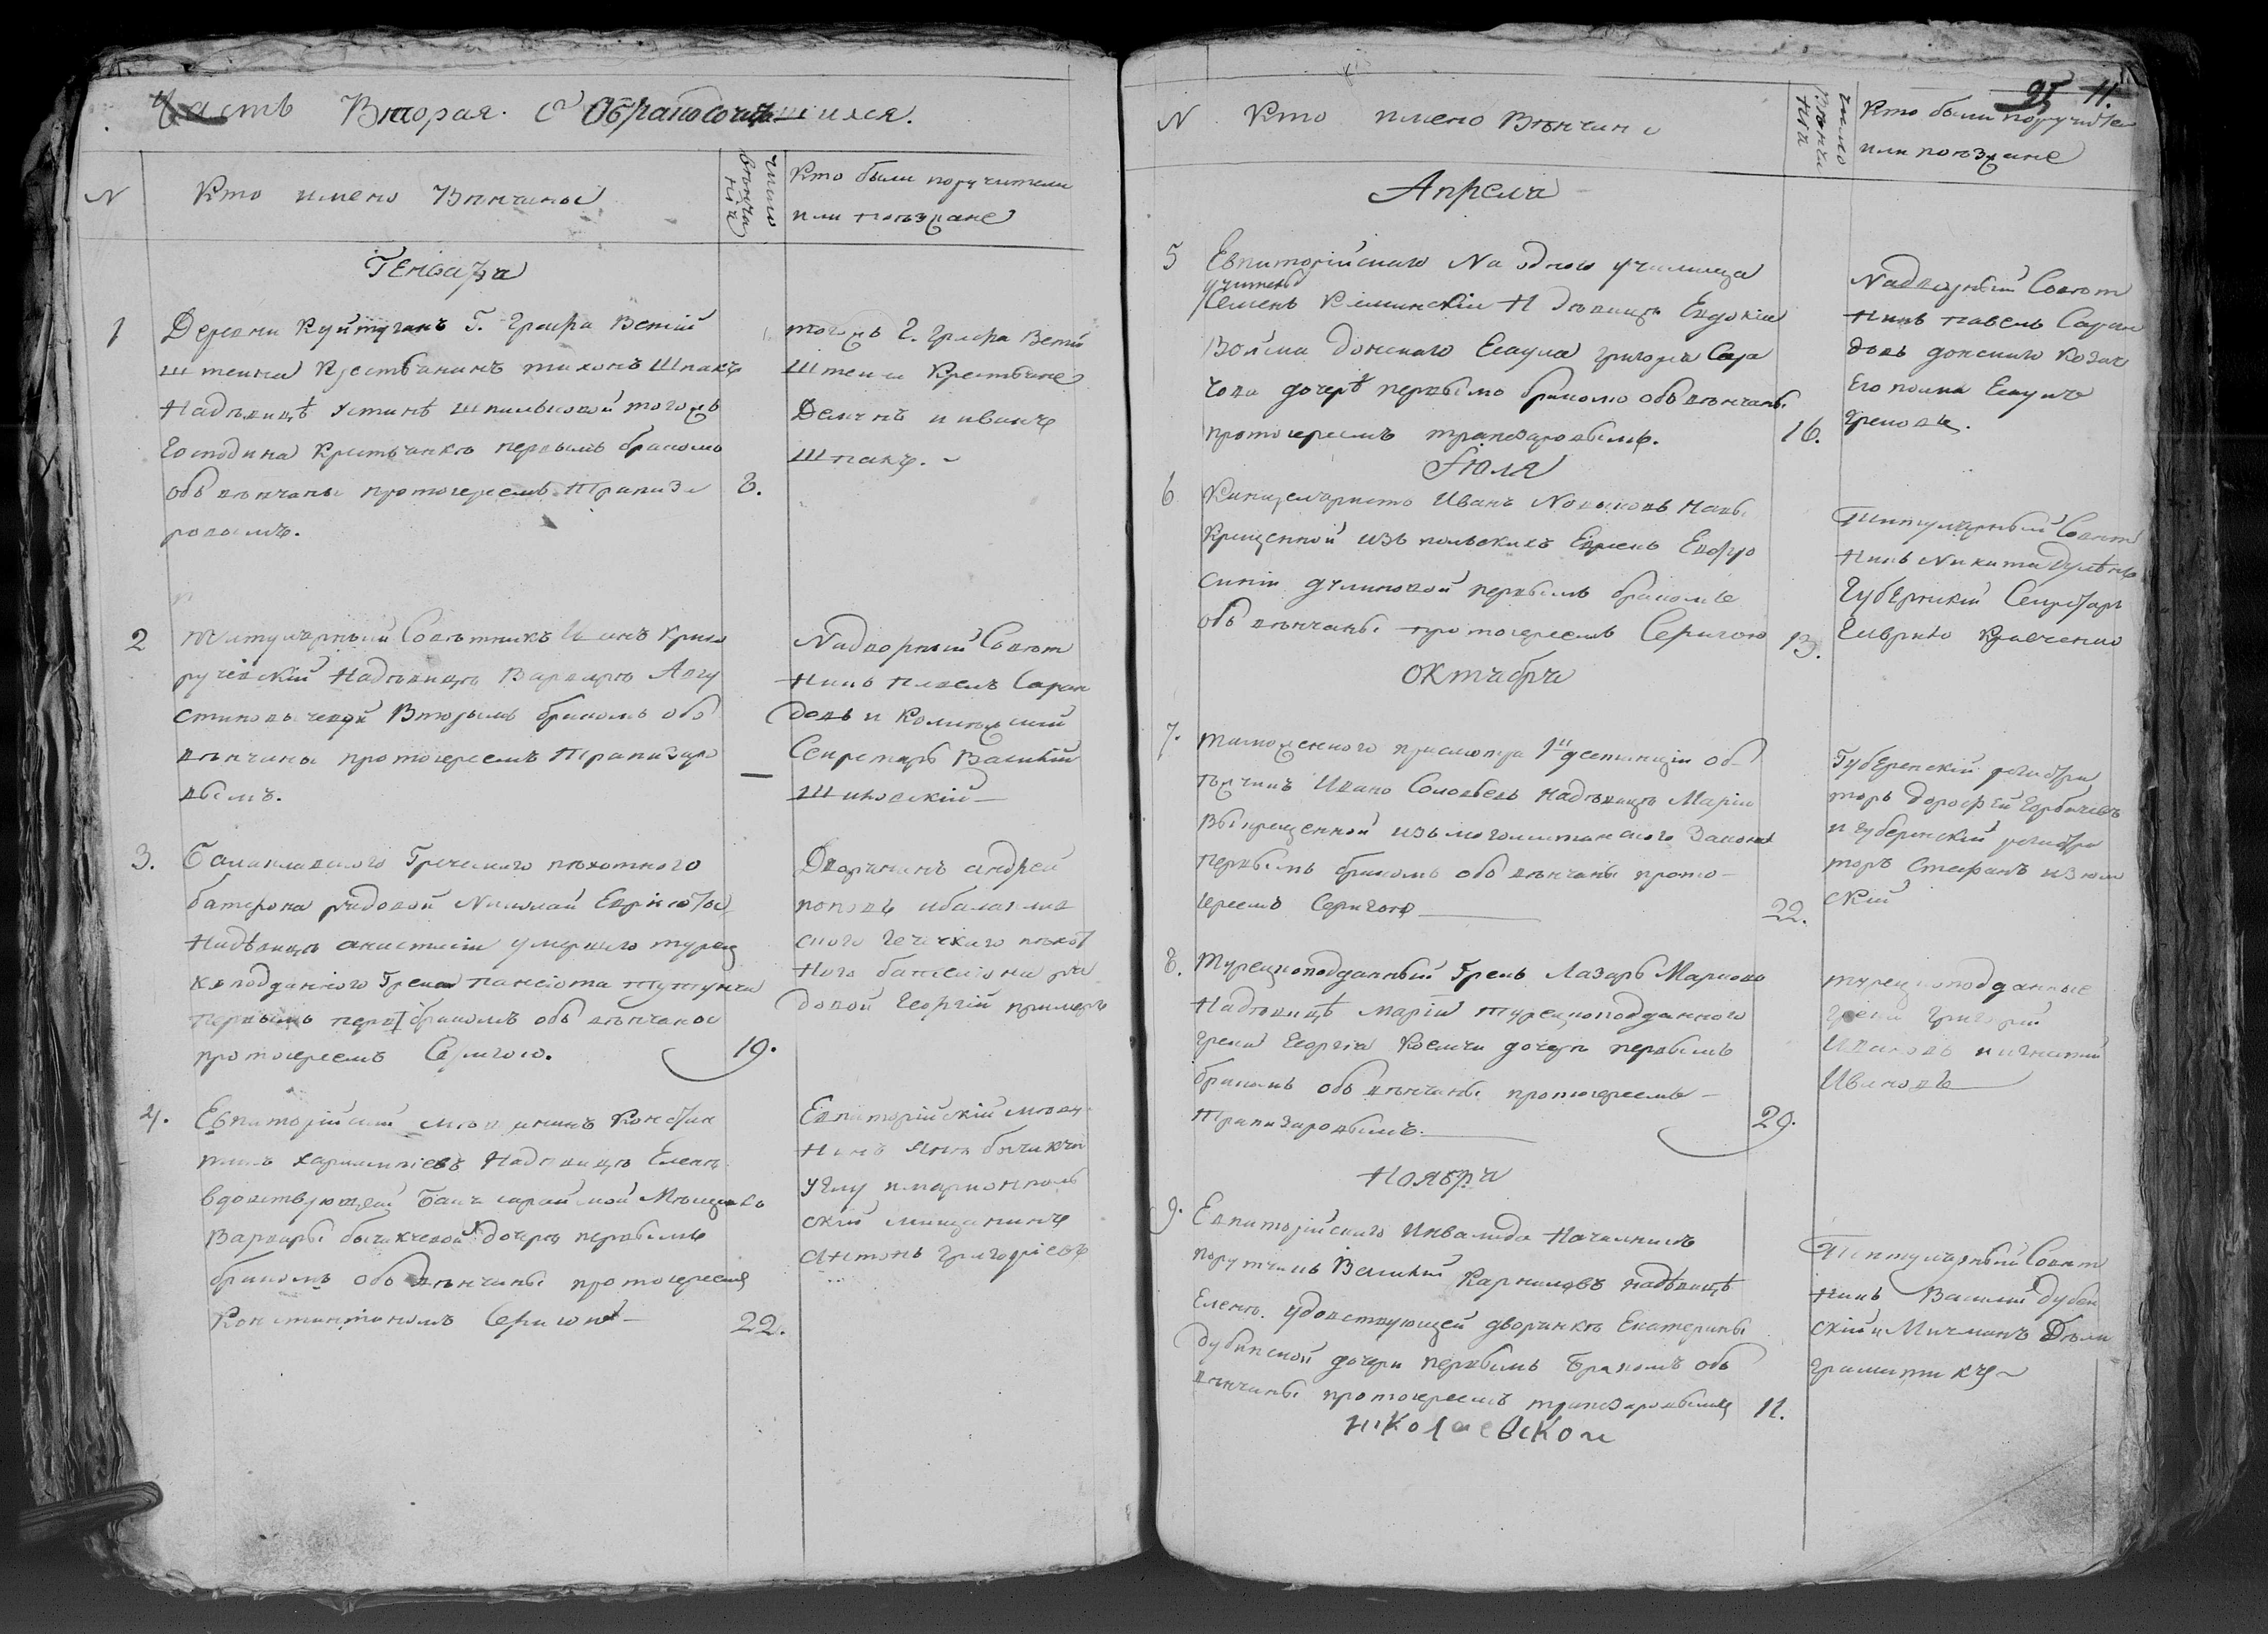 Часть Вторая. О Бракосочетавшихся.
N
Кто имено Венчаны
число венчания
Кто были поручители
или поезжане
Генваря
1
Деревни Куйтуганъ Г. Графа Ветій
штеина Крестьянинъ тихонъ Шпакъ
Надевице Устине Шпильковой тогожъ
Господина Крестьянкъ первымъ бракомъ
объ венчаны протоіереемъ Трапиза
ровымъ.
8.
тогожъ Г. Графа Ветій
Штеина Крестьяне
и иванъ
Шпакъ.
2
титулярный Советникъ
ручевскій Надевице Варваре Авгу
стиновичевой Вторымъ бракомъ объ
венчаны протоіереемъ Трапизаро
вымъ.
—
Надворный Совет
никъ Павелъ Саран
довъ и Колижский
Секретарь Василій
Шиповскій —
3.
Балаклавского Греческого пехотного
баталіона рядовой Николай
Надевице анастасіи умершаго турец
коподданного Грека панаіота тутунжи
первымъ бракомъ объ венчаны
протоіереемъ Серигого.
19.
Дворянинъ андрей
поповъ ибалаклав
ского гечіскаго пехот
ного баталіона ря
довой Георгій
4.
Евпаторійскій мещанинъ Констан
тинъ харлампіевъ Надевице Елене
вдовствующей Бахчисарайской Мещанкъ
Варвары бычакчевой дочере первымъ
бракомъ объ венчаны протоіереемъ
Константиномъ Серигого —
22.
Евпаторійскій меща
нинъ бычакчи
углу имаріонполь
скій мищанинъ
Антонъ Григоріевъ
25 11.
N
Кто имено Венчаны
число Венчания
Кто были поручители
или поезжане
Апреля
5
Евпаторійскаго Народного училища
учитель
Семенъ Климинскій Н девице Евдокіи
Войска донского Есаула Григорія Сара
чова дочере первымо бракомо объ венчаны
протоіереемъ трапезаровымъ.
16.
Надворный Совет
никъ Павелъ Саран
довъ донского Козач
его полка Есаулъ
Грековъ.
Іюля
6
Канцеляристъ Иванъ Новиковъ
Крищенной изъ польскихъ Евреевъ Евфро
синіи первымъ бракомъ
объ венчаны протоіереемъ Серигого
13.
Титулярный Совет
никъ Никита
Губернскій Секретарь
Гаврило Кравченко
октября
7.
таможенного присмотра 1й дестанціи об
ъездчикъ Ивано Соловьевъ Надевице Маріи
Выкрещенной изъ могометанского Закона
первымъ бракомъ объ венчаны прото-
іереемъ Серигого —
22.
Губеренскій регистра
торъ дорофей Горбачевъ
и губеренскій регистра
торъ Стефанъ изюм
скій
8.
Турецкоподданный Грекъ Лазарь Марково
Надевице Маріи турецкоподданного
грека Георгія дочере первымъ
бракомъ объ венчаны протоіереемъ —
Трапизаровымъ —
29.
турецкоподданные
греки Григорій
Ивановъ и игнатій
Ивановъ —
Ноября
9.
Евпаторійскаго Инвалида Начальникъ
поручикъ Василій Карниловъ надевице
Елене. удовствующей дворянке Екатерины
Дубинской дочери первымъ Бракомъ объ
венчаны протоіереемъ трапезаровымъ
11.
Титулярный Совет
никъ Василій Дубен
скій и Мичманъ
Николаевском